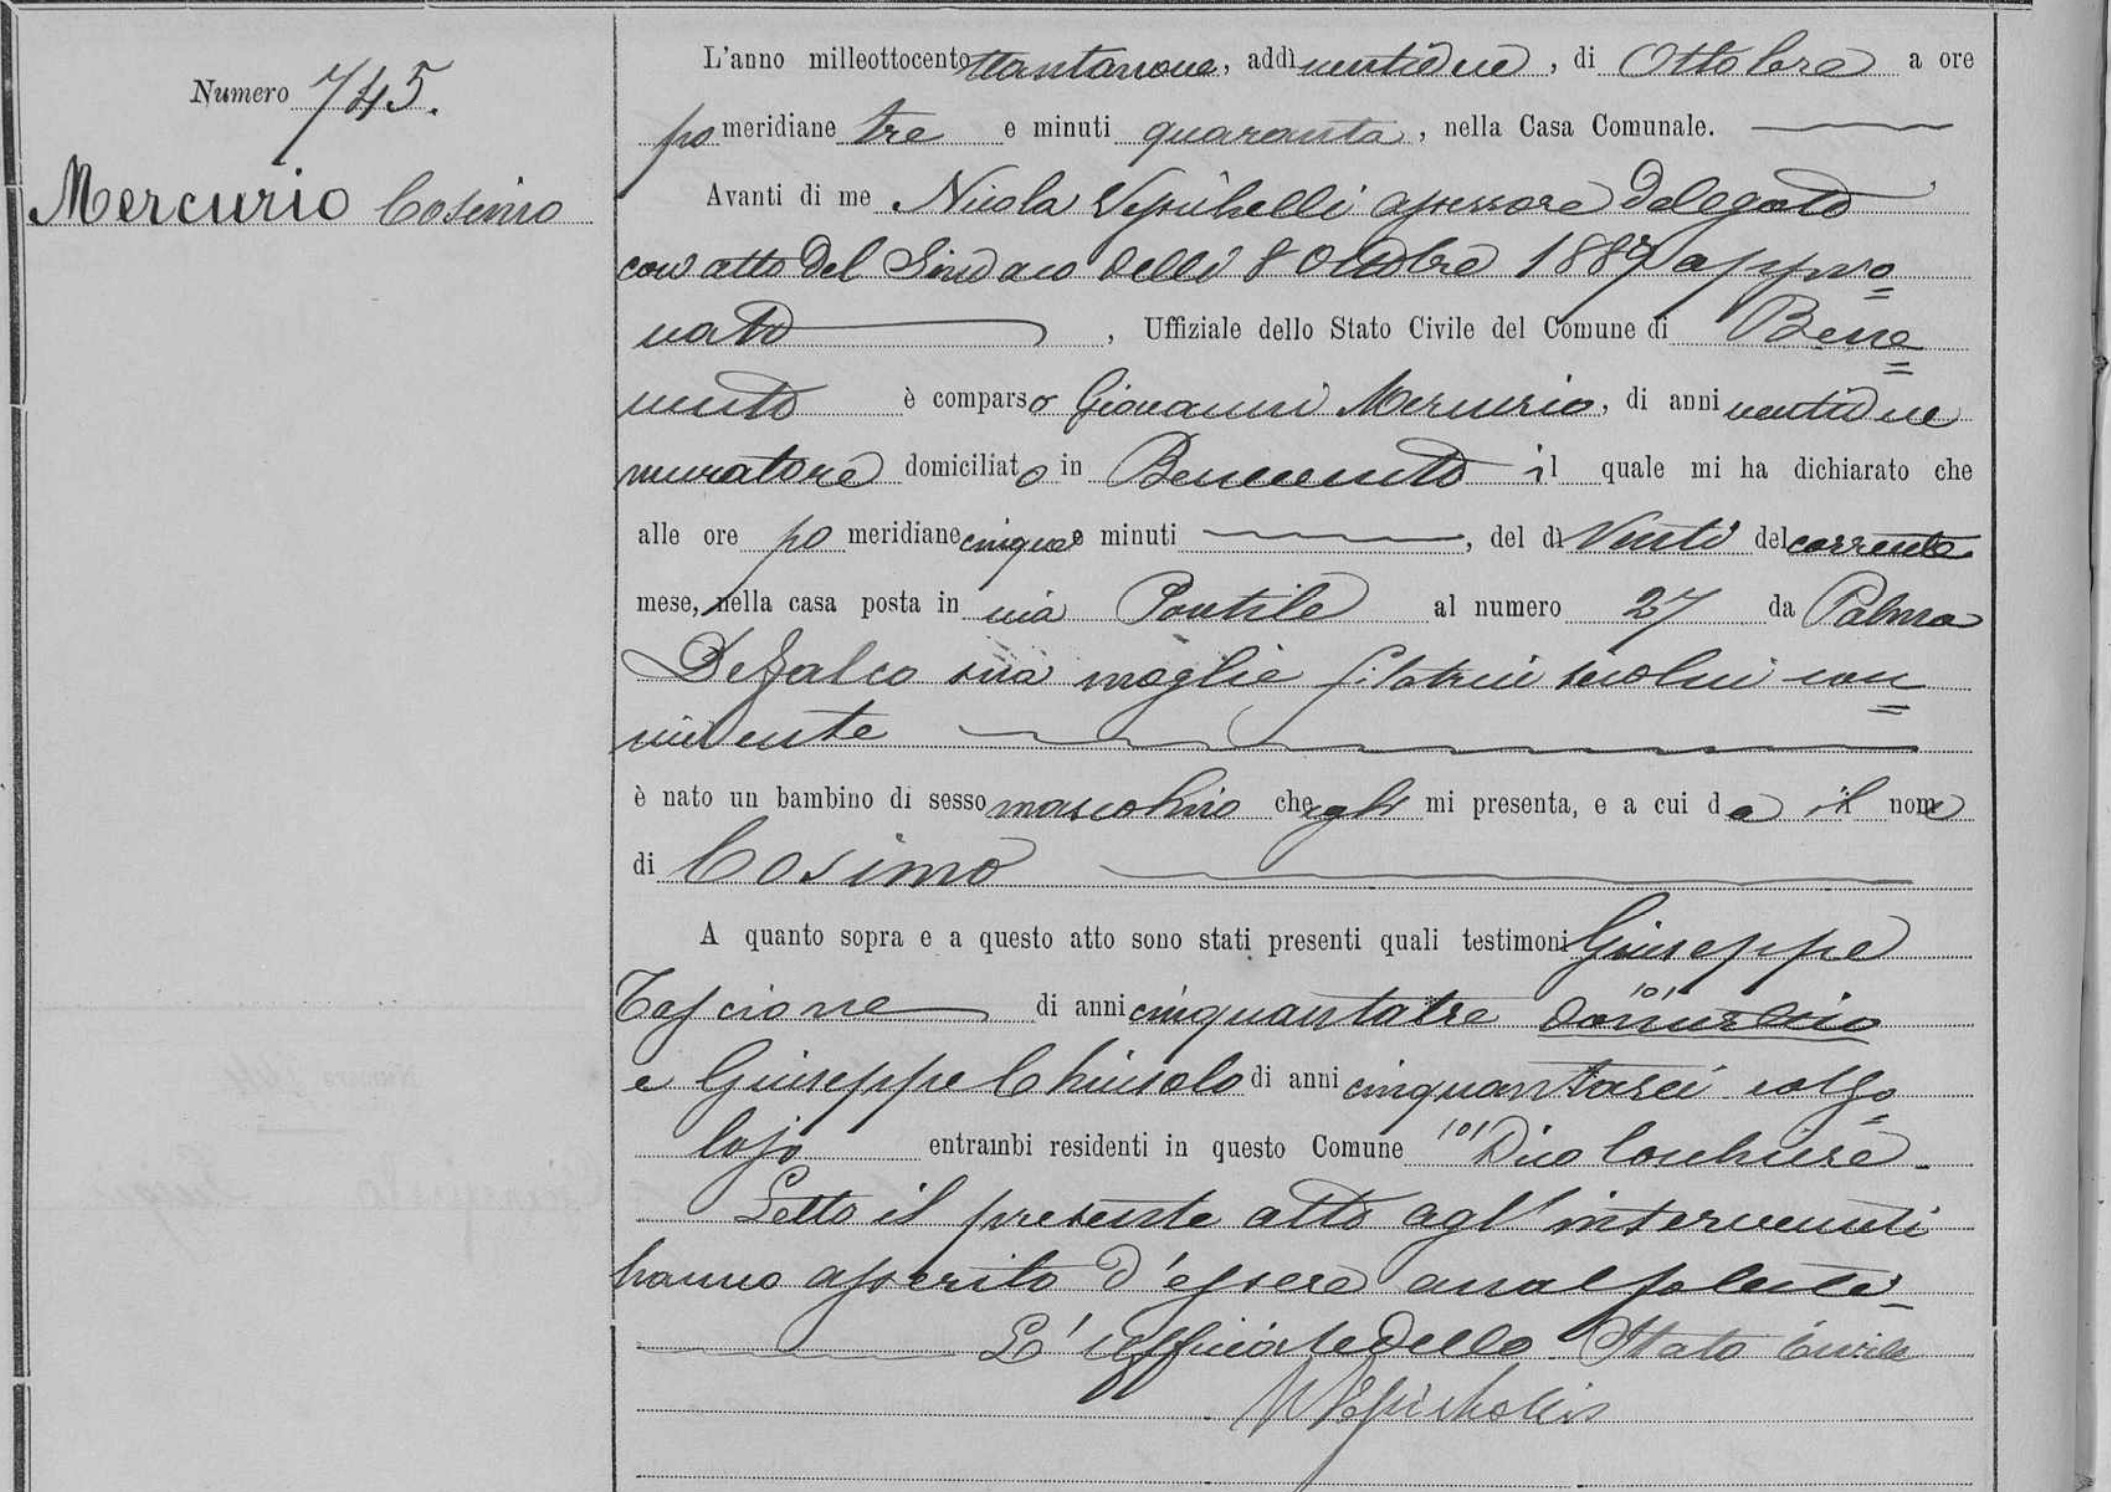 Numero 745.
Mercurio Cosimo
L'anno milleottocento ottantanove, addì ventidue, di Ottobre a ore
pomeridiane tre e minuti quaranta, nella Casa Comunale.
Avanti di me Nicola assessore Delegato
con atto del Sindaco delli 8 Ottobre 1887 appro=
vato, Uffiziale dello Stato Civile del Comune di Bene=
vento è comparso Giovanni Mercurio, di anni ventidue
muratore domiciliato in Benevento il quale mi ha dichiarato che
alle ore pomeridiane cinque e minuti, del dì Venti del corrente
mese, nella casa posta in via Pontile al numero 27 da Palma
Defalco sua moglie filatrice seco lui con=
vivente
è nato un bambino di sesso maschio che egli mi presenta, e a cui da il nome
di Cosimo
A quanto sopra e a questo atto sono stati presenti quali testimoni Giuseppe
Tascione di anni cinquantatre
e Giuseppe Chiusolo di anni cinquantasei calzo=
lajo entrambi residenti in questo Comune Dico
Letto il presente atto agl'intervenuti
hanno asserito d'essere analfabeti
L'ufficiale dello Stato Civile